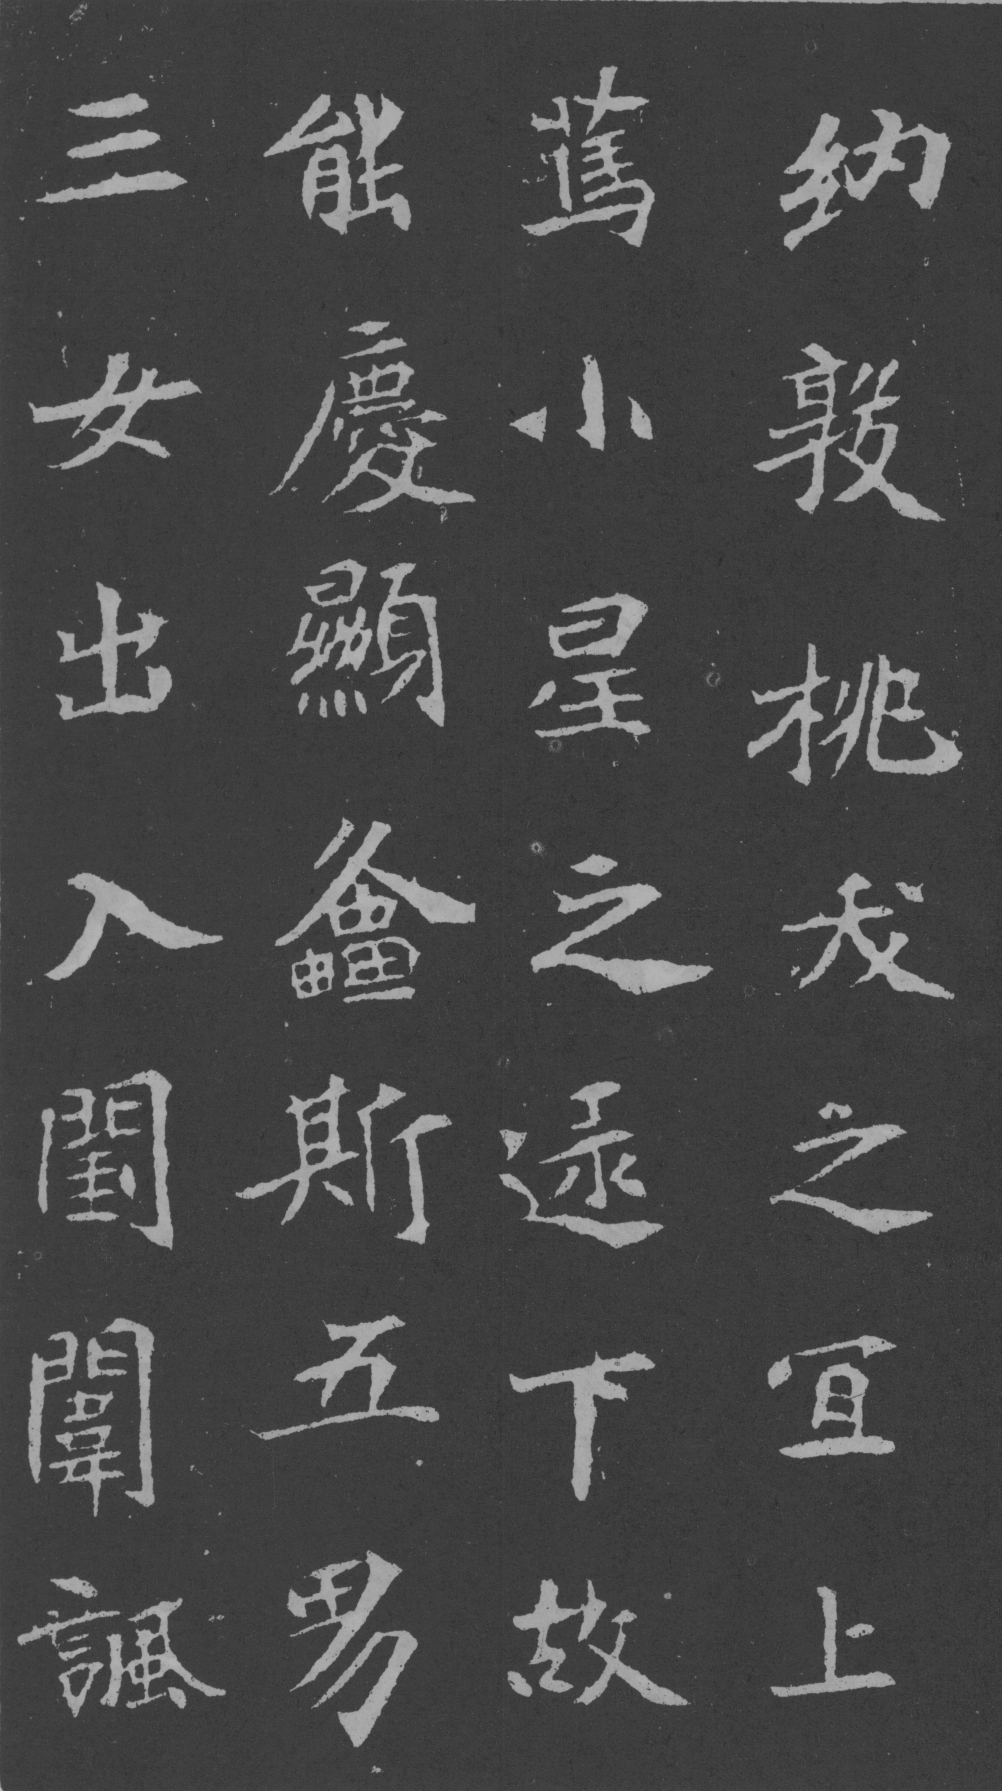 納敦桃夭之宜上
篤小星之逮下故
能慶顯螽斯五男
三女出入閨闈諷